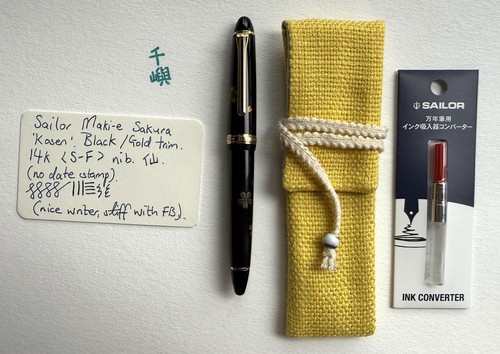 千
嶼
Sailor Maki-e Sakura
'Kosen'. Black/Gold trim.
14k <S-F> nib. 仙.
(no date stamp).
(nice writer, stiff with FB).
SAILOR
万年筆用
インク吸入器/コンバーター
INK CONVERTER